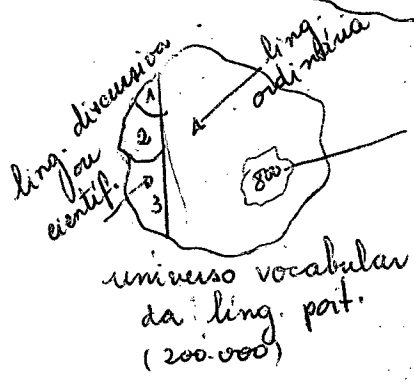 ling. discursiva
ou
científ.
ling.
ordinária
1
2
D
3
A
800
universo vocabular
da ling. port.
(200.000)